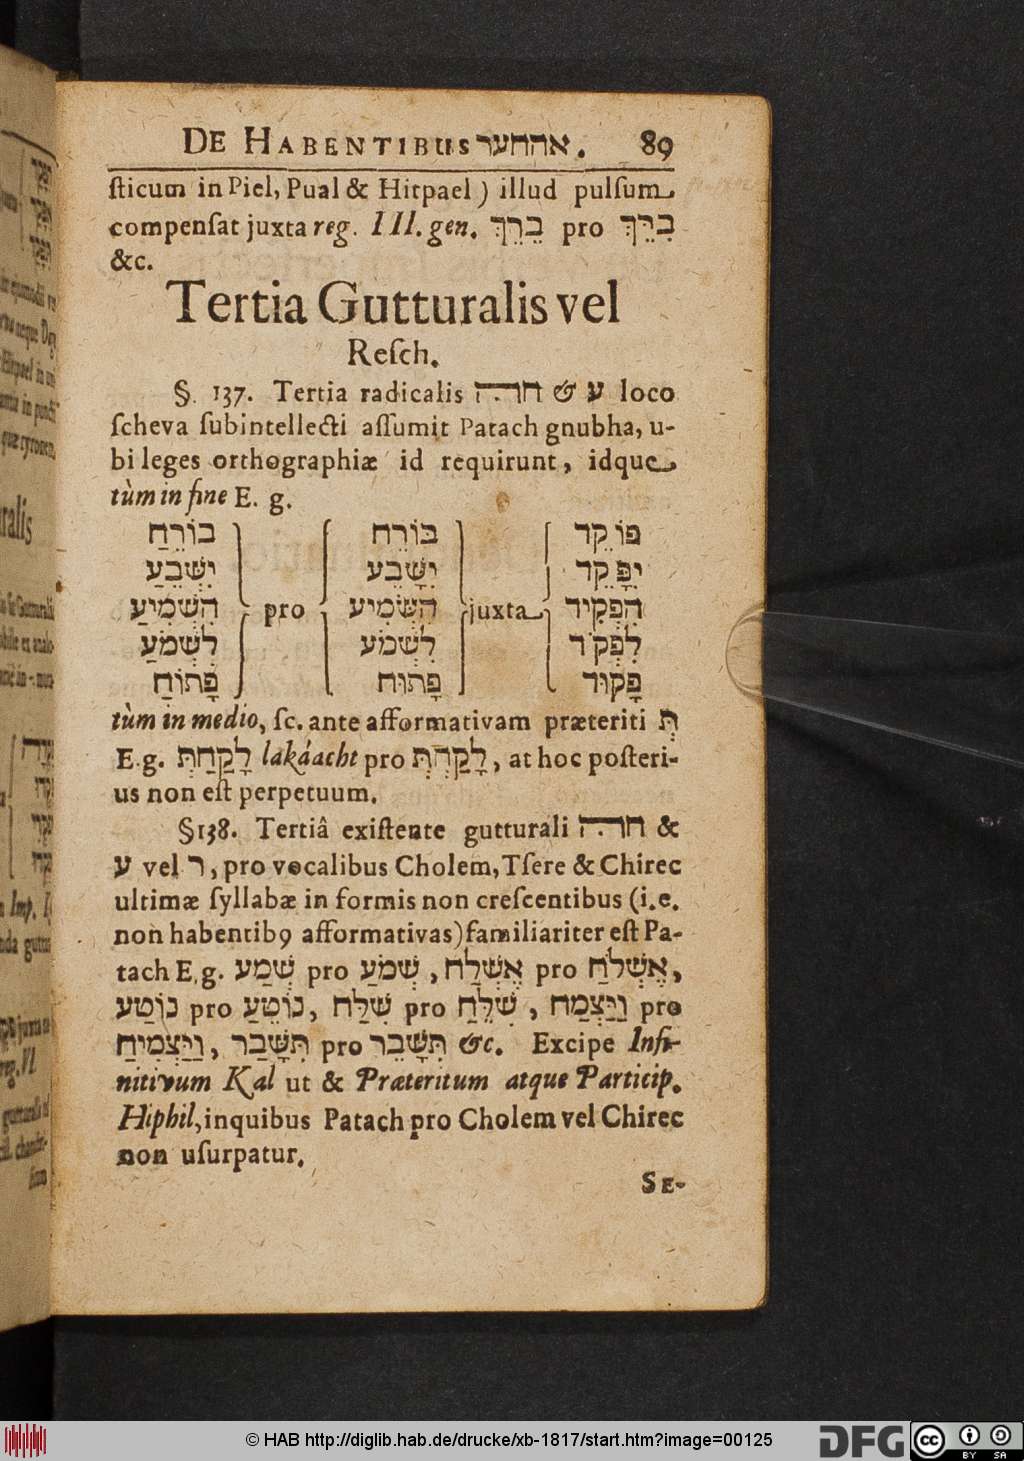 DE HABENTIBUS אההער. 89
ſticum in Piel, Pual & Hitpael) illud pulſum
compenſat juxta reg. III. gen. בֵרֵךְ pro בִרֵּךְ
&c.
Tertia Gutturalis vel
Reſch.
§. 137. Tertia radicalis & ע loco
ſcheva ſubintellecti aſſumit Patach gnubha, u-
bi leges orthographiæ id requirunt, idque
tùm in fine E. g.
בוֹרֵחַ pro בּוֹרֵח juxta פּוֹקֵד
יִשָּׁבֵעַ יִשָּׁבֵע יִפָּקֵד
הִשְׁמִיעַ הִשְׁמִיע הִפְקִיד
לִשְׁמֹעַ לִשְׁמֹע לִפְקֹד
פָּתוּחַ פָּתוּח פָּקוּד
tùm in medio, ſc. ante afformativam præteriti תְּ
E.g. לָקַחַתְּ lakáacht pro , at hoc poſteri-
us non eſt perpetuum.
§138. Tertiâ exiſtente gutturali &
ע vel ר, pro vocalibus Cholem, Tſere & Chirec
ultimæ ſyllabæ in formis non creſcentibus (i.e.
non habentib9 afformativas) familiariter eſt Pa-
tach E.g. שְׁמַע pro שְׁמֹעַ, אֶשְׁלַח pro אֶשְׁלֹחַ,
נוֹטַע pro נוֹטֵעַ, שִׁלַּח pro שִׁלֵּחַ, וַיַּצְמַח pro
וַיַּצְמִיחַ, תִּשָּׁבַר pro תִּשָּׁבֵר &c. Excipe Infi-
nitivum Kal ut & Præteritum atque Particip.
Hiphil, in quibus Patach pro Cholem vel Chirec
non uſurpatur.
SE-
© HAB http://diglib.hab.de/drucke/xb-1817/start.htm?image=00125
DFG
cc BY SA